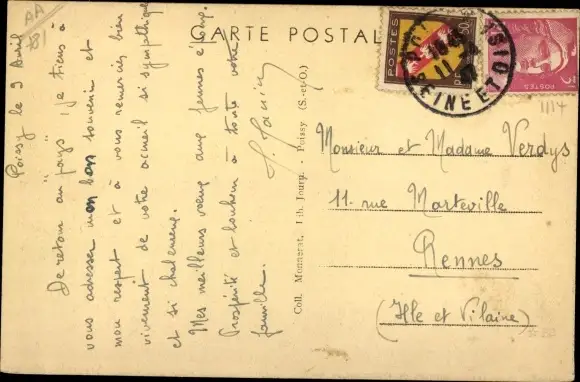 AA
CARTE POSTALE
Poissy le 9 Avril
De retour au "pays", je tiens à
vous adresser mon bon souvenir et
mon respect et à vous remercier bien
vivement de votre accueil si sympathique
et si chaleureux.
Mes meilleurs vœux aux jeunes époux.
Prospérité et bonheur à toute votre
famille.
Coll. Monnerat, Lib. Journ. - Poissy (S.-et-O.)
POSTES
POSTES
SEINE ET OISE
1114
Monsieur et Madame Verdys
11. rue Marteville
Rennes
(Ille et Vilaine)